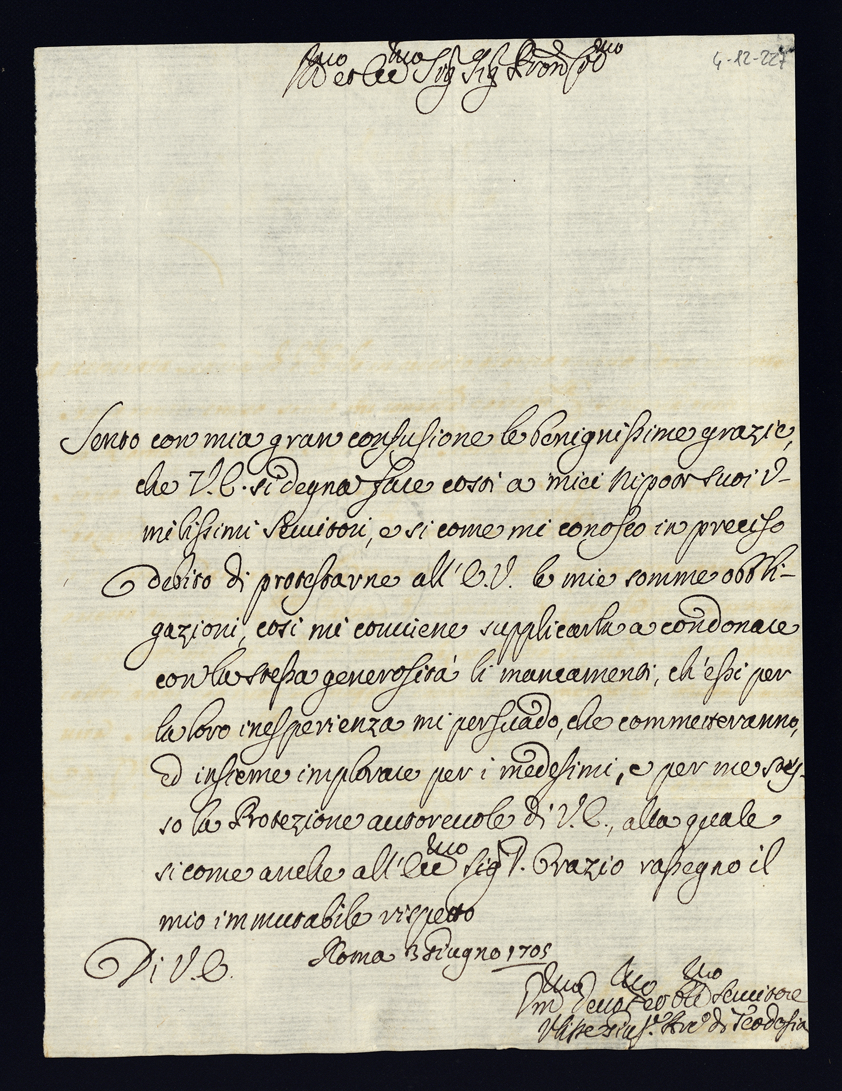 Ill.mo et Ecc.mo Sig.r Sig.r Pron Col.mo
4-12-227
Sento con mia gran confusione le benignissime grazie,
che V.E. si degna fare costì a miei Nipoti suoi V-
milissimi Servitori, e si come mi conosco in preciso
debito di protestarne all'E.V. le mie somme obbli-
gazioni, così mi conviene supplicarla a condonare
con la stessa generosità li mancamenti, ch'essi per
la loro inesperienza mi persuado, che commetteranno,
ed insieme implorare per i medesimi, e per me stes-
so la Protezione autorevole di V.E., alla quale
si come anche all'Ecc.mo Sig.r D. Orazio rassegno il
mio immutabile rispetto
Di V.E. Roma 3 Giugno 1705
Um.mo Deu.mo et Obl.mo Seruitore
di Teodosia